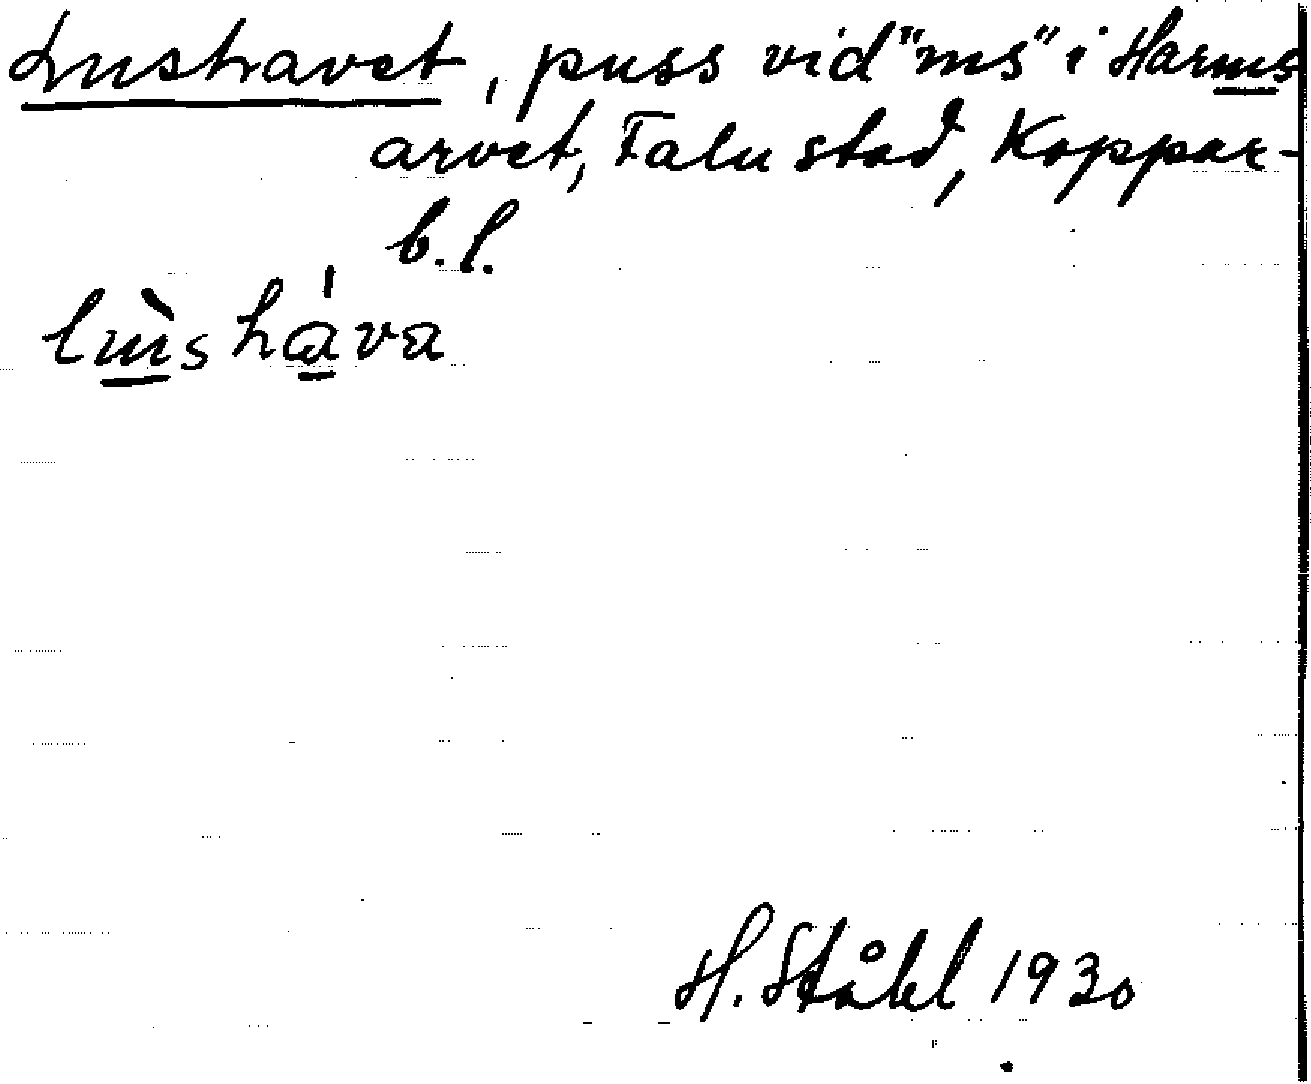 Lushavet, puss vid "ms" i Harms
arvet, Falu stad, Koppar-
b.l.
lùsháva
H. Ståhl 1930